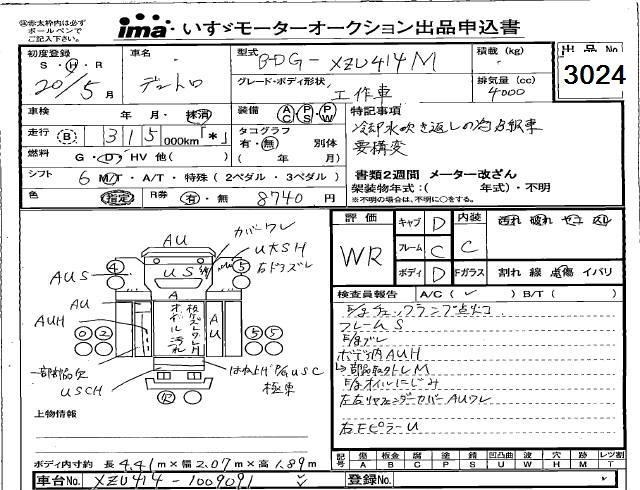 ※赤太枠内は必ず
ボールペンで
ご記入下さい。
ima いすゞモーターオークション出品申込書
出品No
3024
初度登録
S・H・R
20/5月
車名
デュトロ
型式
BDG-XZU414M
積載(kg)
グレード・ボディ形状
工作車
排気量(cc)
4000
車検 年 月・抹消
装備 AC PS PW
特記事項
冷却水吹き返しの為
要構変
走行 (B) 315 000km「*」
タコグラフ
有・無 別体
( 年 月)
燃料 G・D・HV 他( )
シフト 6 M/T・A/T・特殊(2ペダル・3ペダル)
書類2週間 メーター改ざん
架装物年式:( 年式)・不明
※不明の場合は、不明に○をする。
色 指定 R券 有・無 8740 円
評価
WR
キャブ D
フレーム C
ボディ D
内装 C
Fガラス
汚れ 破れ
割れ 線 点傷 イバリ
検査員報告 A/C(✓) B/T( )
E/gチェックランプ点灯
フレームS
ボデー内AUH
E/gオイルにじみ
左右リヤフェンダーカバーAUワレ
右EピラーU
AU
カバーワレ
UKSH
4
US
5
AUS
A
AU
AUH
0 2
AU
5 5
一部部品欠
USCH
はね上げP/G USC
極東
上物情報
ボディ内寸約 長 4.41m×幅 2.07m×高 1.89m
記号
傷 A
板金 B
腐 C
塗 P
錆 S
凹凸曲 U
波 W
穴 H
跡 M
レツ割 T
車台No. XZU414-1009091
登録No.